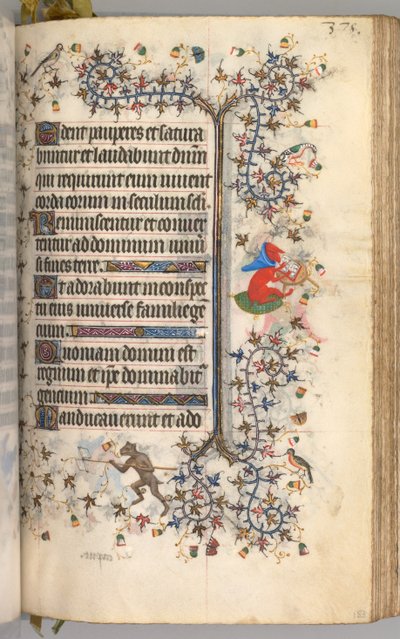 375.
Edent pauperes et satura
buntur et laudabunt dnm̄
qui requirunt eum vivent
corda eorum in seculum scli̅.
Reminiscentur et conver
tentur ad dominum univ̄si
fines terre.
Et adorabunt in conspec
tu eius universe familie gē
cium.
Quoniam domini est
regnum et ip̄e dominabit̄
gencium.
Manducaverunt et ado